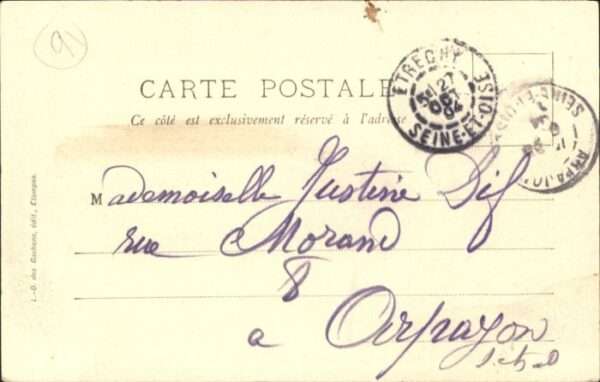 91
CARTE POSTALE
Ce côté est exclusivement réservé à l'adresse
ETRECHY
27
OCT
04
SEINE-ET-OISE
ARPAJON
SEINE-ET-OISE
Mademoiselle Justine Dif
rue Morand
8
a Arpajon
S et O